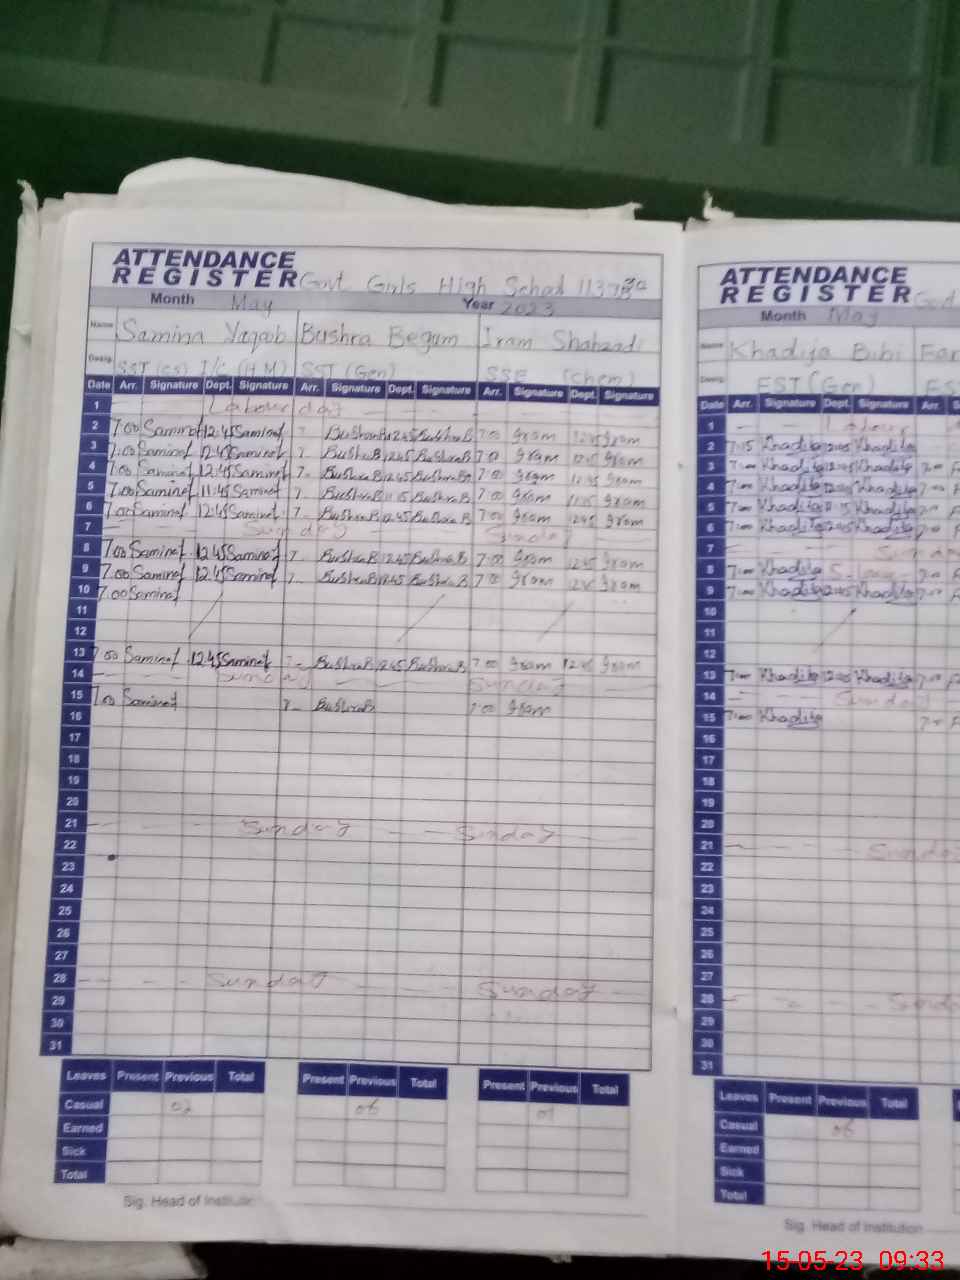 ATTENDANCE
REGISTER Govt Girls High School
Month May Year 2023
Name Samina Yaqoob Bushra Begum Iram Shahzadi
Desig. SST (CS) I/C (H M) SST (Gen) SSE (Chem)
Date Arr. Signature Dept. Signature Arr. Signature Dept. Signature Arr. Signature Dept. Signature
1 Labour day
2 7.00 Samina 12.45 Samina 7- BushraB 12.45 BushraB 7:00 Iram 12:45 Iram
3 7.00 Samina 12.45 Samina 7- BushraB 12.45 BushraB 7:00 Iram 12:45 Iram
4 7.00 Samina 12.45 Samina 7- BushraB 12.45 BushraB 7:00 Iram 12:45 Iram
5 7.00 Samina 11.45 Samina 7- BushraB 11.15 BushraB 7:00 Iram Iram
6 7.00 Samina 12.45 Samina 7- BushraB 12.45 BushraB 7:00 Iram 12:45 Iram
7 Sunday Sunday
8 7.00 Samina 12.45 Samina 7- BushraB 12.45 BushraB 7:00 Iram 12:45 Iram
9 7.00 Samina 12.45 Samina 7- BushraB 12.45 BushraB 7:00 Iram 12:45 Iram
10 7.00 Samina
11
12
13 7.00 Samina 12.45 Samina 7- BushraB 12.45 BushraB 7:00 Iram 12:45 Iram
14 Sunday Sunday
15 7.00 Samina 7- BushraB 7:00 Iram
16
17
18
19
20
21 Sunday Sunday
22
23
24
25
26
27
28 Sunday Sunday
29
30
31
Leaves Present Previous Total Present Previous Total Present Previous Total
Casual 02 06 01
Earned
Sick
Total
Sig. Head of Institution
ATTENDANCE
REGISTER
Month May
Name Khadija Bibi
Desig. EST (Gen)
Date Arr. Signature Dept. Signature Arr.
1 Labour
2 7:15 Khadija 12:45 Khadija
3 7:00 Khadija 12:45 Khadija 7:00
4 7:00 Khadija 12:45 Khadija 7:00
5 7:00 Khadija Khadija 7:00
6 7:00 Khadija 12:45 Khadija 7:00
7 Sunday
8 7:00 Khadija 7:00
9 7:00 Khadija 12:45 Khadija 7:00
10
11
12
13 7:00 Khadija 12:45 Khadija 7:00
14 Sunday
15 7:00 Khadija 7:00
16
17
18
19
20
21 Sunday
22
23
24
25
26
27
28 Sunday
29
30
31
Leaves Present Previous Total
Casual 06
Earned
Sick
Total
Sig. Head of Institution
15-05-23 09:33